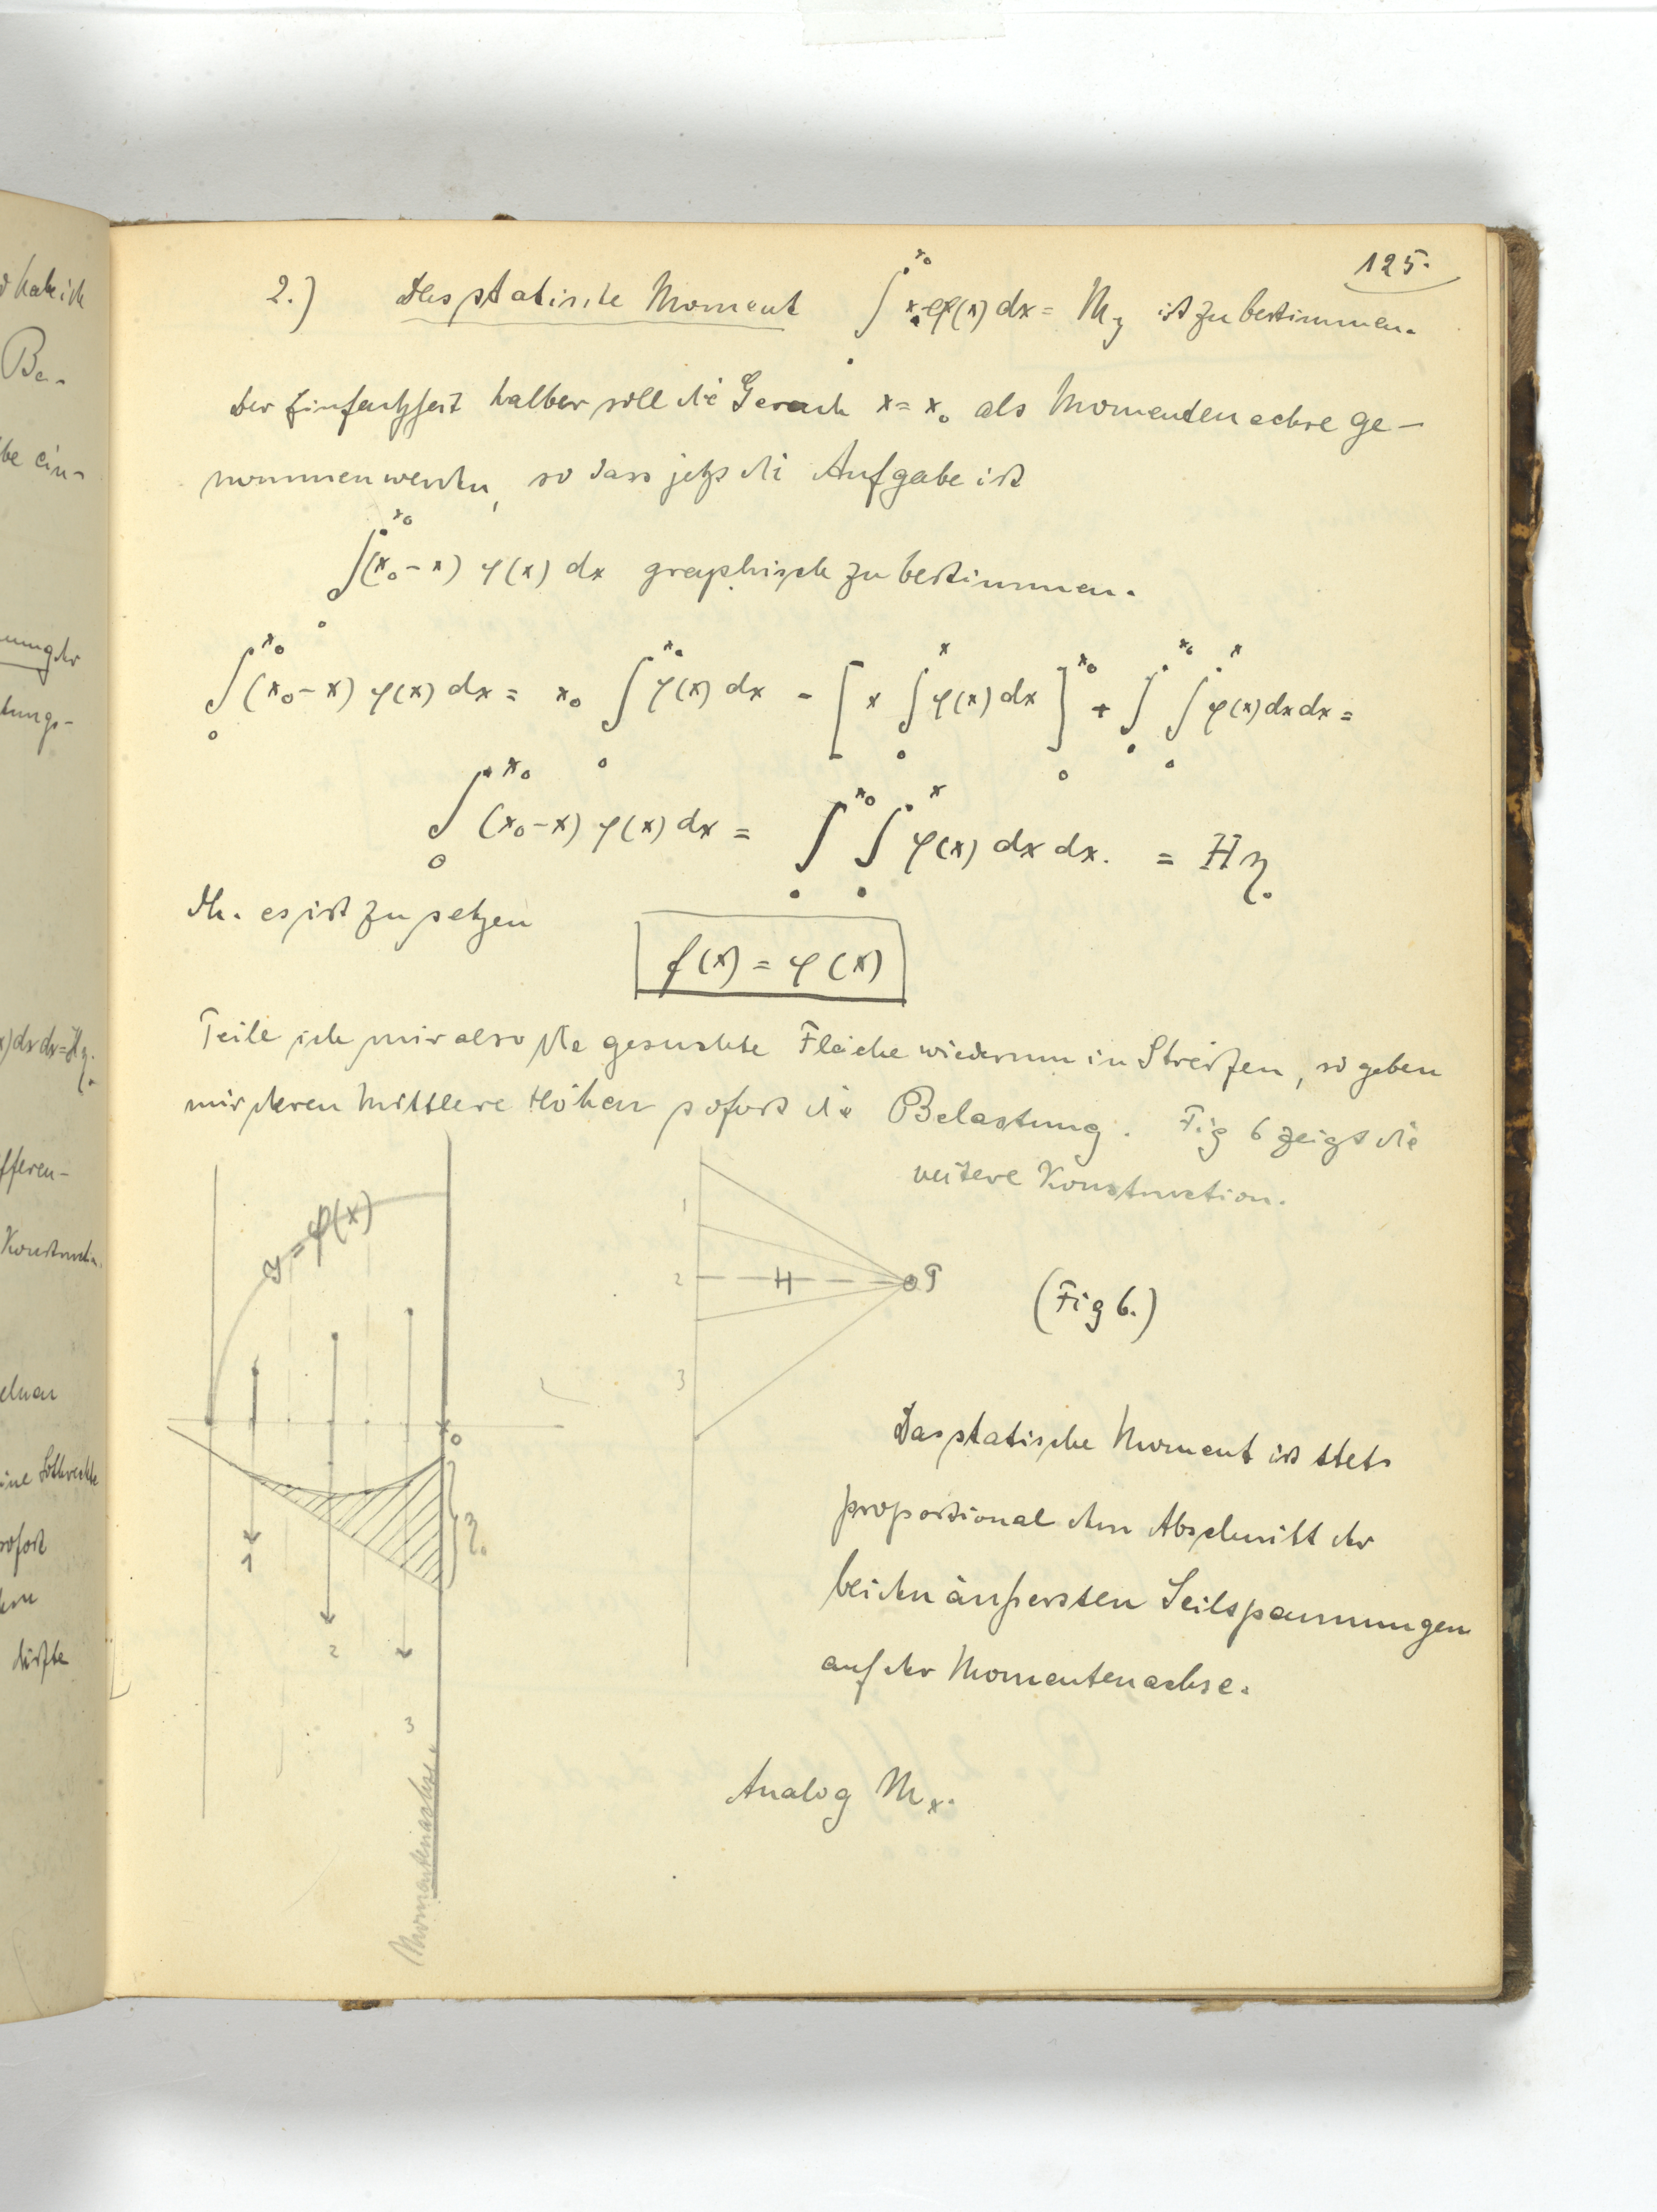 d habe ich
Be-
be ein-
nung der
tungs-
x) dx dx = Hη.
fferen-
Konstruktion.
ine Lotrechte
sofort
dürfte
125.
2.) Das statische Moment ∫₀^{x₀} x·φ(x) dx = M_y ist zu bestimmen.
Der Einfachheit halber soll die Gerade x = x₀ als Momentenachse ge-
nommen werden, so dass jetzt die Aufgabe ist
∫₀^{x₀} (x₀-x) φ(x) dx graphisch zu bestimmen.
∫₀^{x₀} (x₀-x) φ(x) dx = x₀ ∫₀^{x₀} φ(x) dx - [x ∫₀^x φ(x) dx]₀^{x₀} + ∫₀^{x₀} ∫₀^x φ(x) dx dx =
∫₀^{x₀} (x₀-x) φ(x) dx = ∫₀^{x₀} ∫₀^x φ(x) dx dx. = Hη.
Dh. es ist zu setzen
f(x) = φ(x)
Teile ich mir also die gesuchte Fläche wiederum in Streifen, so geben
mir deren mittlere Höhen sofort die Belastung. Fig 6 zeigt die
weitere Konstruction.
y = φ(x)
1
2
3
H
P
(Fig 6.)
x₀
η.
1
2
3
Momentenachse.
Das statische Moment ist stets
proportional dem Abschnitt der
beiden äußersten Seilspannungen
auf der Momentenachse.
Analog M_x.